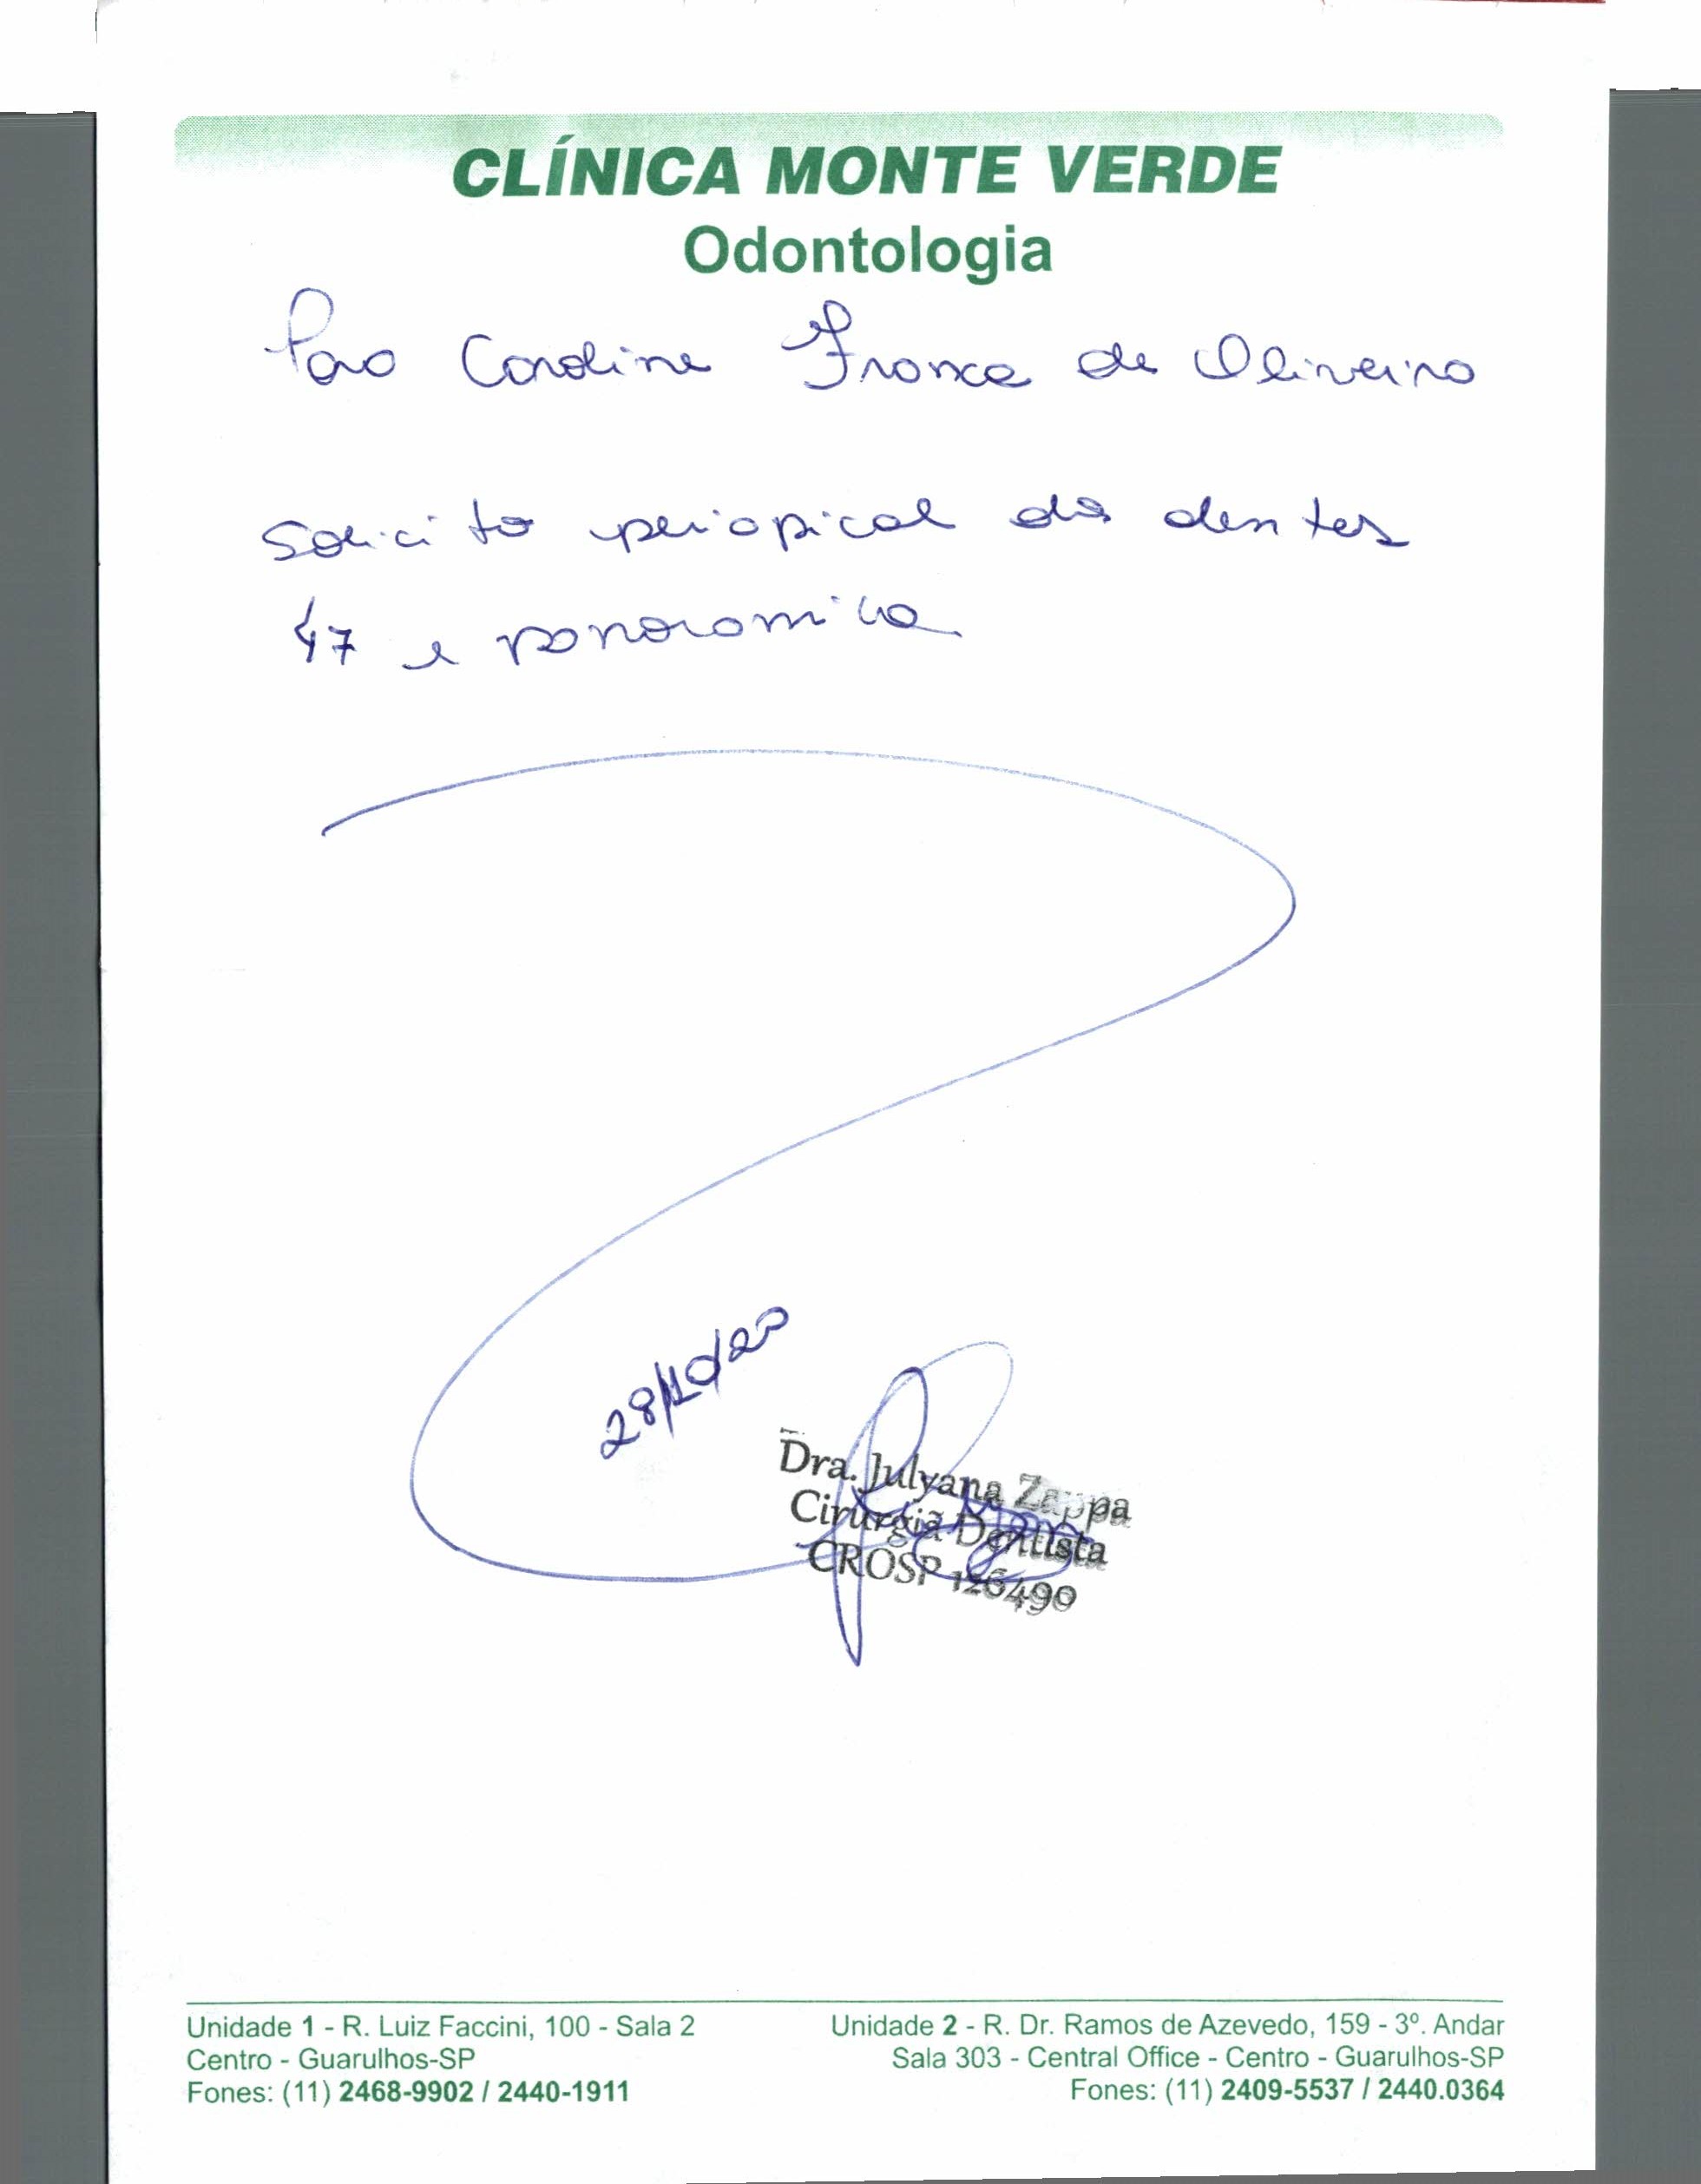 CLÍNICA MONTE VERDE
Odontologia
Para Caroline Franca de Oliveira
Solicito periapical dos dentes
47 e panoramica
28/10/20
Dra. Julyana Zappa
Cirurgiã Dentista
CROSP 126490
Unidade 1 - R. Luiz Faccini, 100 - Sala 2
Centro - Guarulhos-SP
Fones: (11) 2468-9902 / 2440-1911
Unidade 2 - R. Dr. Ramos de Azevedo, 159 - 3º. Andar
Sala 303 - Central Office - Centro - Guarulhos-SP
Fones: (11) 2409-5537 / 2440.0364